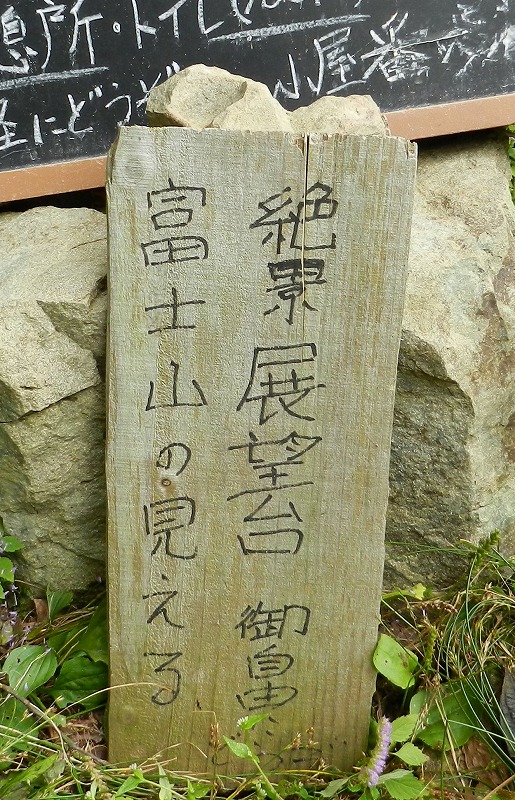 息所・トイレ
小屋番
軽にどうぞ
富士山の見える
絶景展望台 御自由に
どうぞ